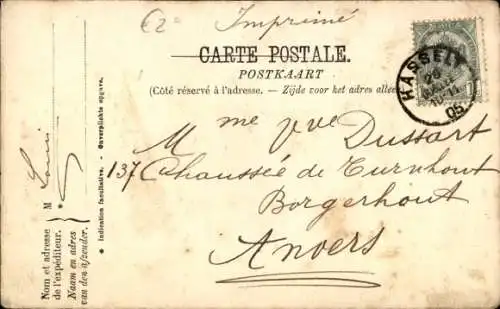 €2°
Imprimé
CARTE POSTALE.
POSTKAART
(Côté réservé à l'adresse. — Zijde voor het adres
HASSELT
05
Mme Vve Dussart
137 Chaussée de Turnhout
Borgerhout
Anvers
Nom et adresse
de l'expéditeur.
Naam en adres
van den afzender.
M Louis
* Indication facultative. - Onverplichte opgave.